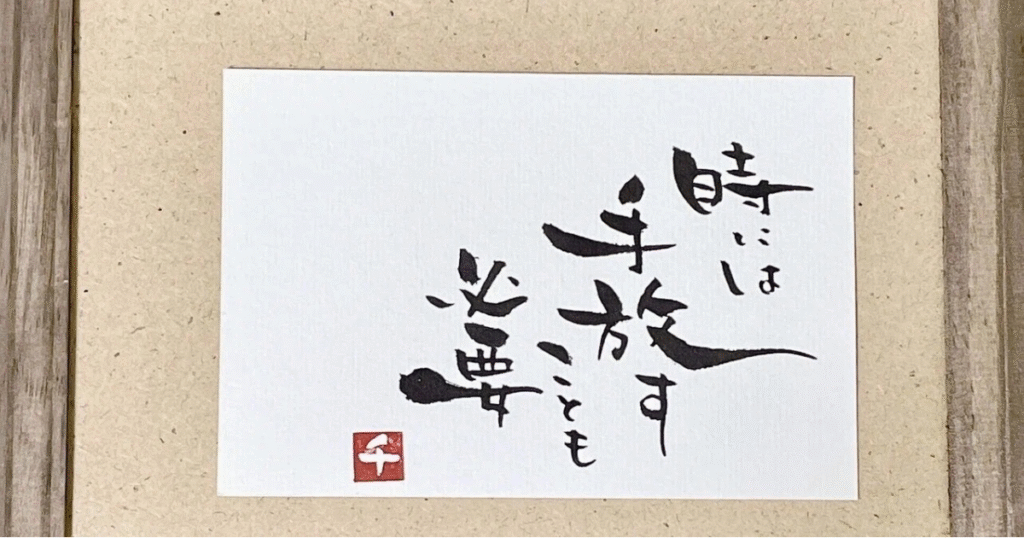 時には
手放す
ことも
必要
千